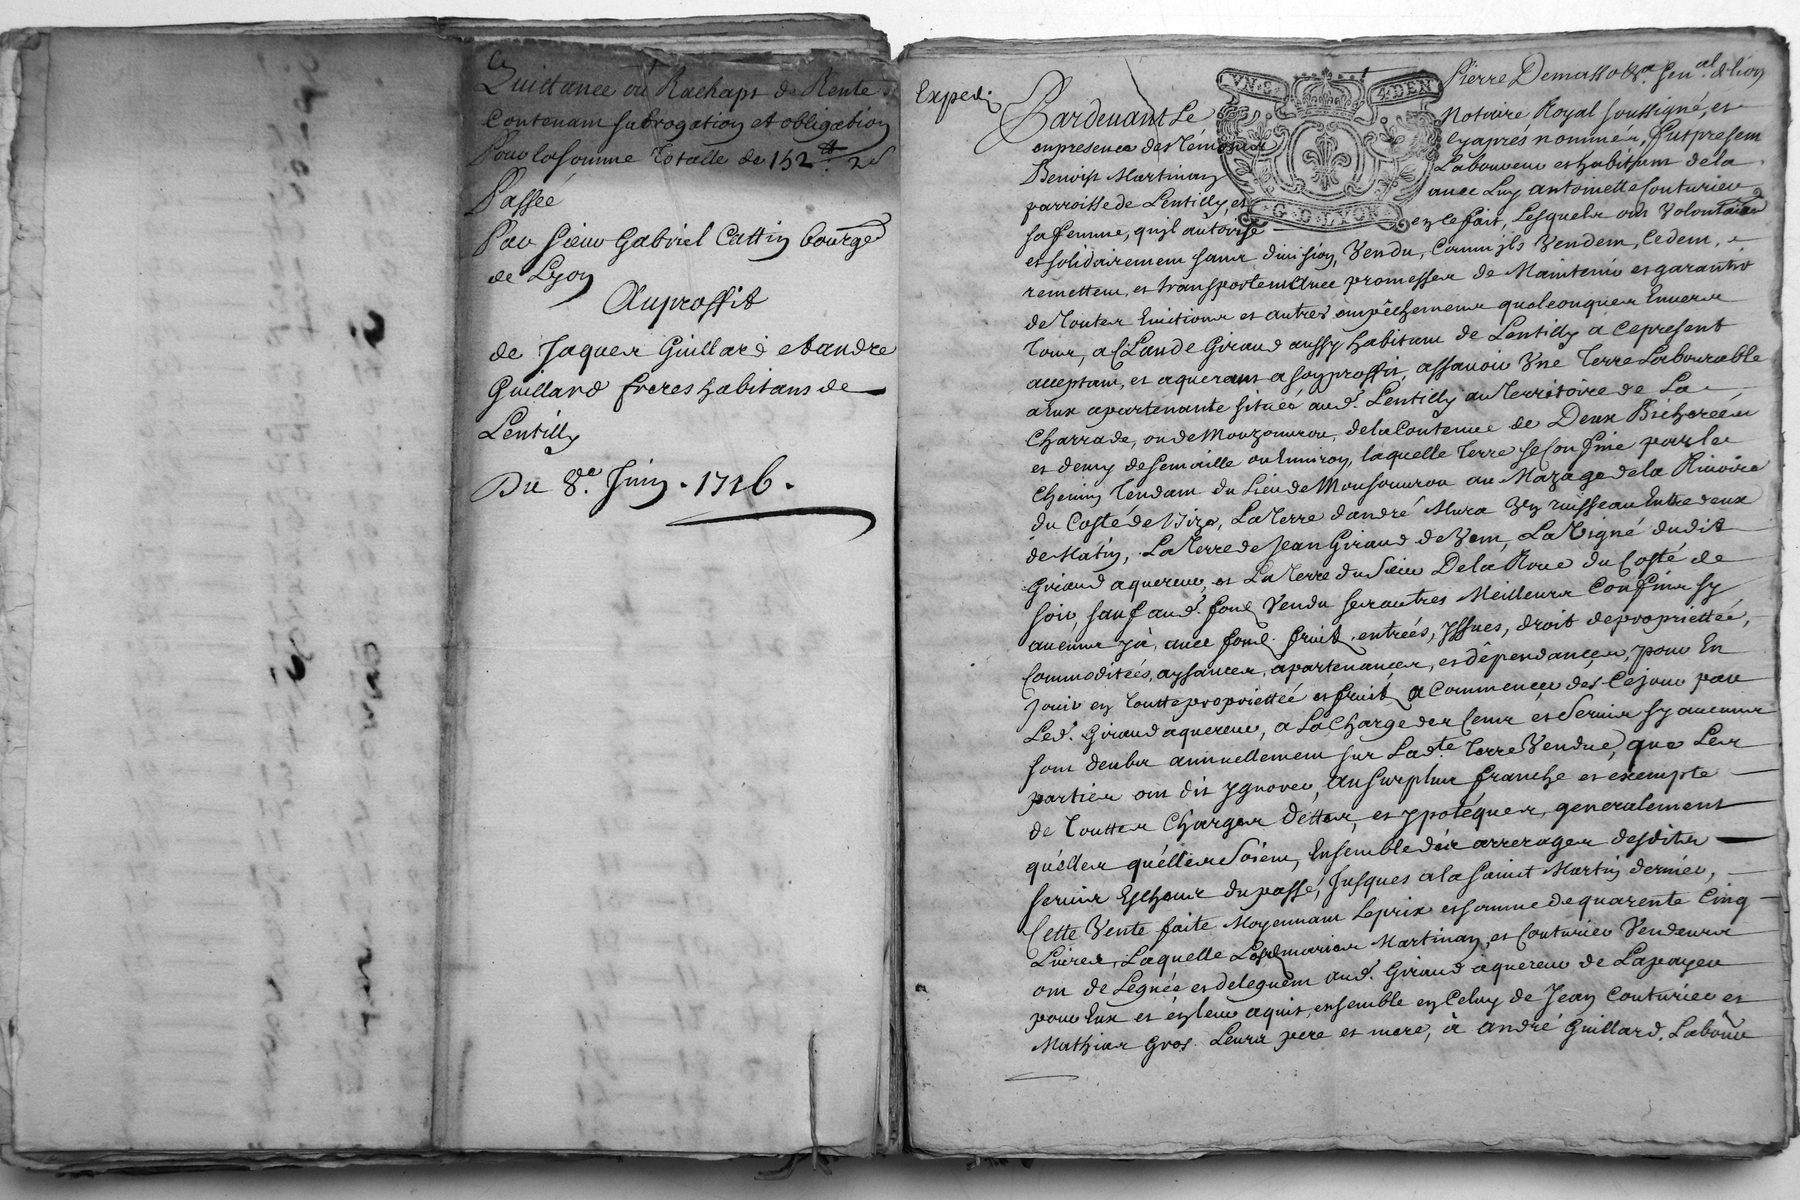 Quittance ou Rachapt de Rente
Contenant subrogation et obligation
Pour la somme Totalle de 152 ₶ 2 s
Passée
Par sieur Gabriel Cattin bourgs
de Lyon
Auproffit
de Jaques Guillard et andré
Guillard freres habitans de
Lentilly
Du 8e. Juin . 1716 .
Exped.
VN.S. 4.DEN
G.D.LYON
Pardevant Le Notaire Royal soussigné, et
en presence des témoins cyaprés nommés, fut present
Benoist Martinay Laboureur et habitant de la
parroisse de Lentilly, et avec Luy antoinette Couturier
sa femme, qu'il autorise en ce fait, Lesquels ont volontaires
et solidairement sans division, Vendu, Comm'ils Vendent, Cedent,
remettent, et transportent avec promesses de Maintenir et garantir
de toutes Evictions et autres empêchements quelconques Envers
tous, a Claude Giraud aussy habitant de Lentilly a ce present
acceptant, et aquerant a son proffit, assavoir Vne Terre Labourable
a Eux apartenante située aud. Lentilly au Territoire de La
Charrade, ou de Monzourou, de la Contenue de Deux Bicherées
et demy de semaille ou Environ, laquelle Terre se Confine par le
Chemin Tendant du Lieu de Monsouvrou au Mazage de la Rivoire
du Costé de bize, La Terre d'andré Mura Vn ruisseau Entre deux
de Matin, La Terre de Jean Giraud de Vent, La Vigne dudit
Giraud aquereur, et La Terre du Sieur De la Roue du Costé de
soir, sauf aud. fond Vendu ses autres Meilleurs Confins sy
aucuns y à, avec fond. fruit. entrées, yssues, droit de propriettée,
Commoditées, aysances, apartenances, et dépendances, pour En
jouir en toutte propriettée et fruit a Commencer des Ce jour par
Led. Giraud aquereur, a La Charge des Cens et Servis sy aucuns
sont deubs annuellement sur Ladte. Terre Vendue, que Les
parties ont dit ygnorer, au surplus franche et exempte
de Touttes Charges Dettes, et ypotéques, generalement
quelles quélles Soient, Ensemble des arrerages desdits
servis Escheus du passé, Jusques a la saint Martin dernier,
Cette Vente faite Moyennant Le prix et somme de quarente Cinq
Livres, Laquelle Lesd. mariés Martinay, et Couturier Vendeurs
ont de Legué et deleguent aud. Giraud aquereur de La payer
pour Eux et en leur aquit, ensemble en Celuy de Jean Couturier et
Mathias Gros. Leurs pere et mere, à andré Guillard. Labour